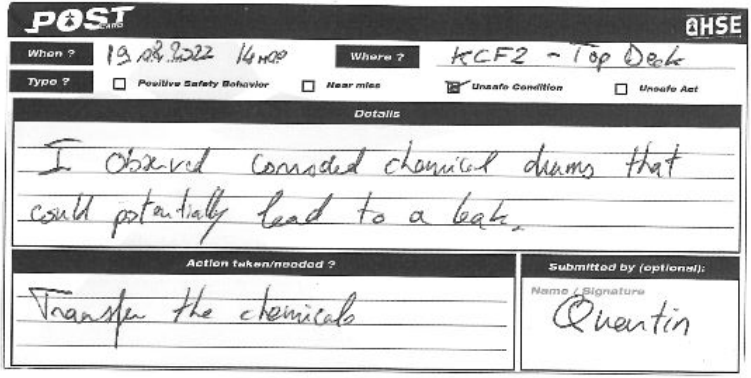 POST
CARD
HSE
When ? 19.08.2022 14H00 Where ? KCF2 - Top Deck
Type ? Positive Safety Behavior Near miss Unsafe Condition Unsafe Act
Details
I observed corroded chemical drums that
could potentially lead to a leak.
Action taken/needed ?
Transfer the chemicals
Submitted by (optional):
Name / Signature
Quentin